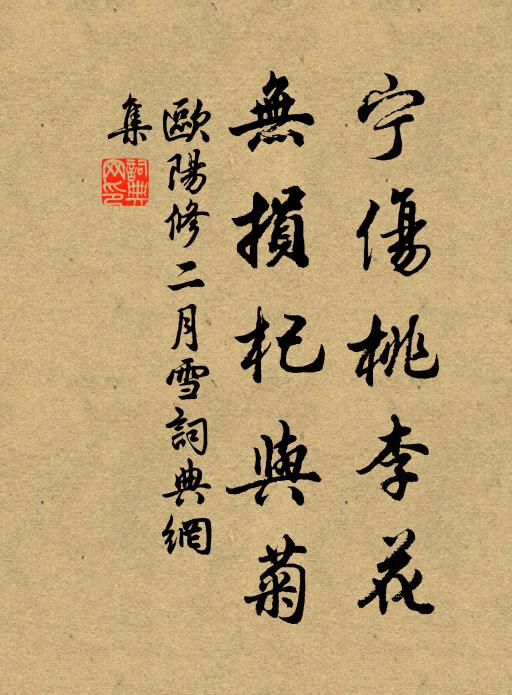 宁傷桃李花
無損杞與菊
歐陽修二月雪詞典網
集
詞典網印